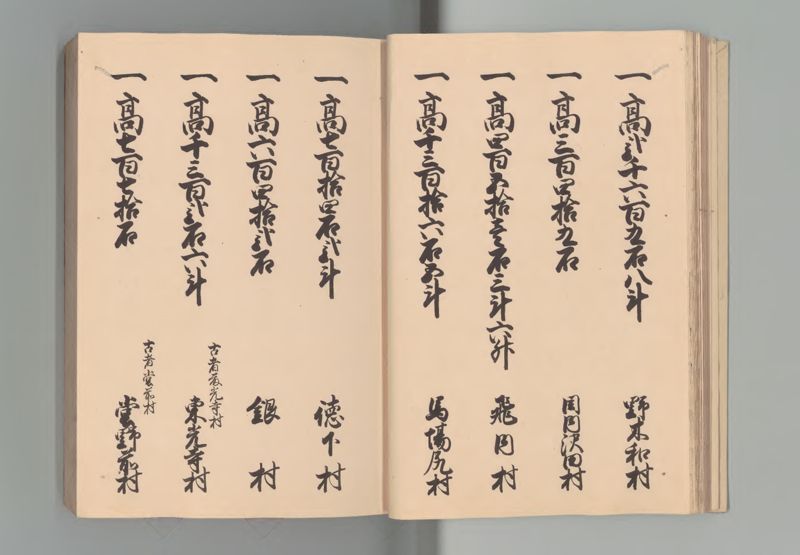 一高弐千六百九石八斗 野木和村
一高三百四拾九石 岡田沢田村
一高四百五拾壱石三斗六升 飛鳥村
一高千三百拾六石五斗 馬場尻村
一高七百拾四石弐斗 徳下村
一高六百四拾弐石 銀村
一高千三百弐石六斗 東光寺村
古者 光寺村
一高七百七拾石 堂野前村
古者堂前村